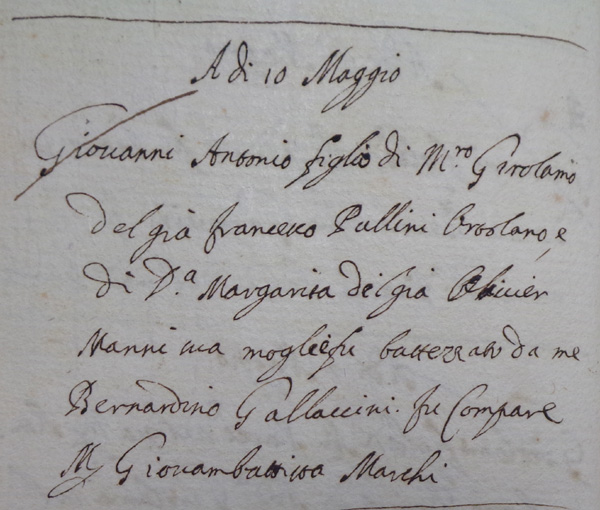 A di 10 Maggio
Giovanni Antonio figlio di M.ro Girolamo
del già Francesco Pullini Ortolano, e
di D.a Margarita del già Olivier
Nanni sua moglie fu battezzato da me
Bernardino Gallaccini. fu Compare
M Giovambattista Marchi